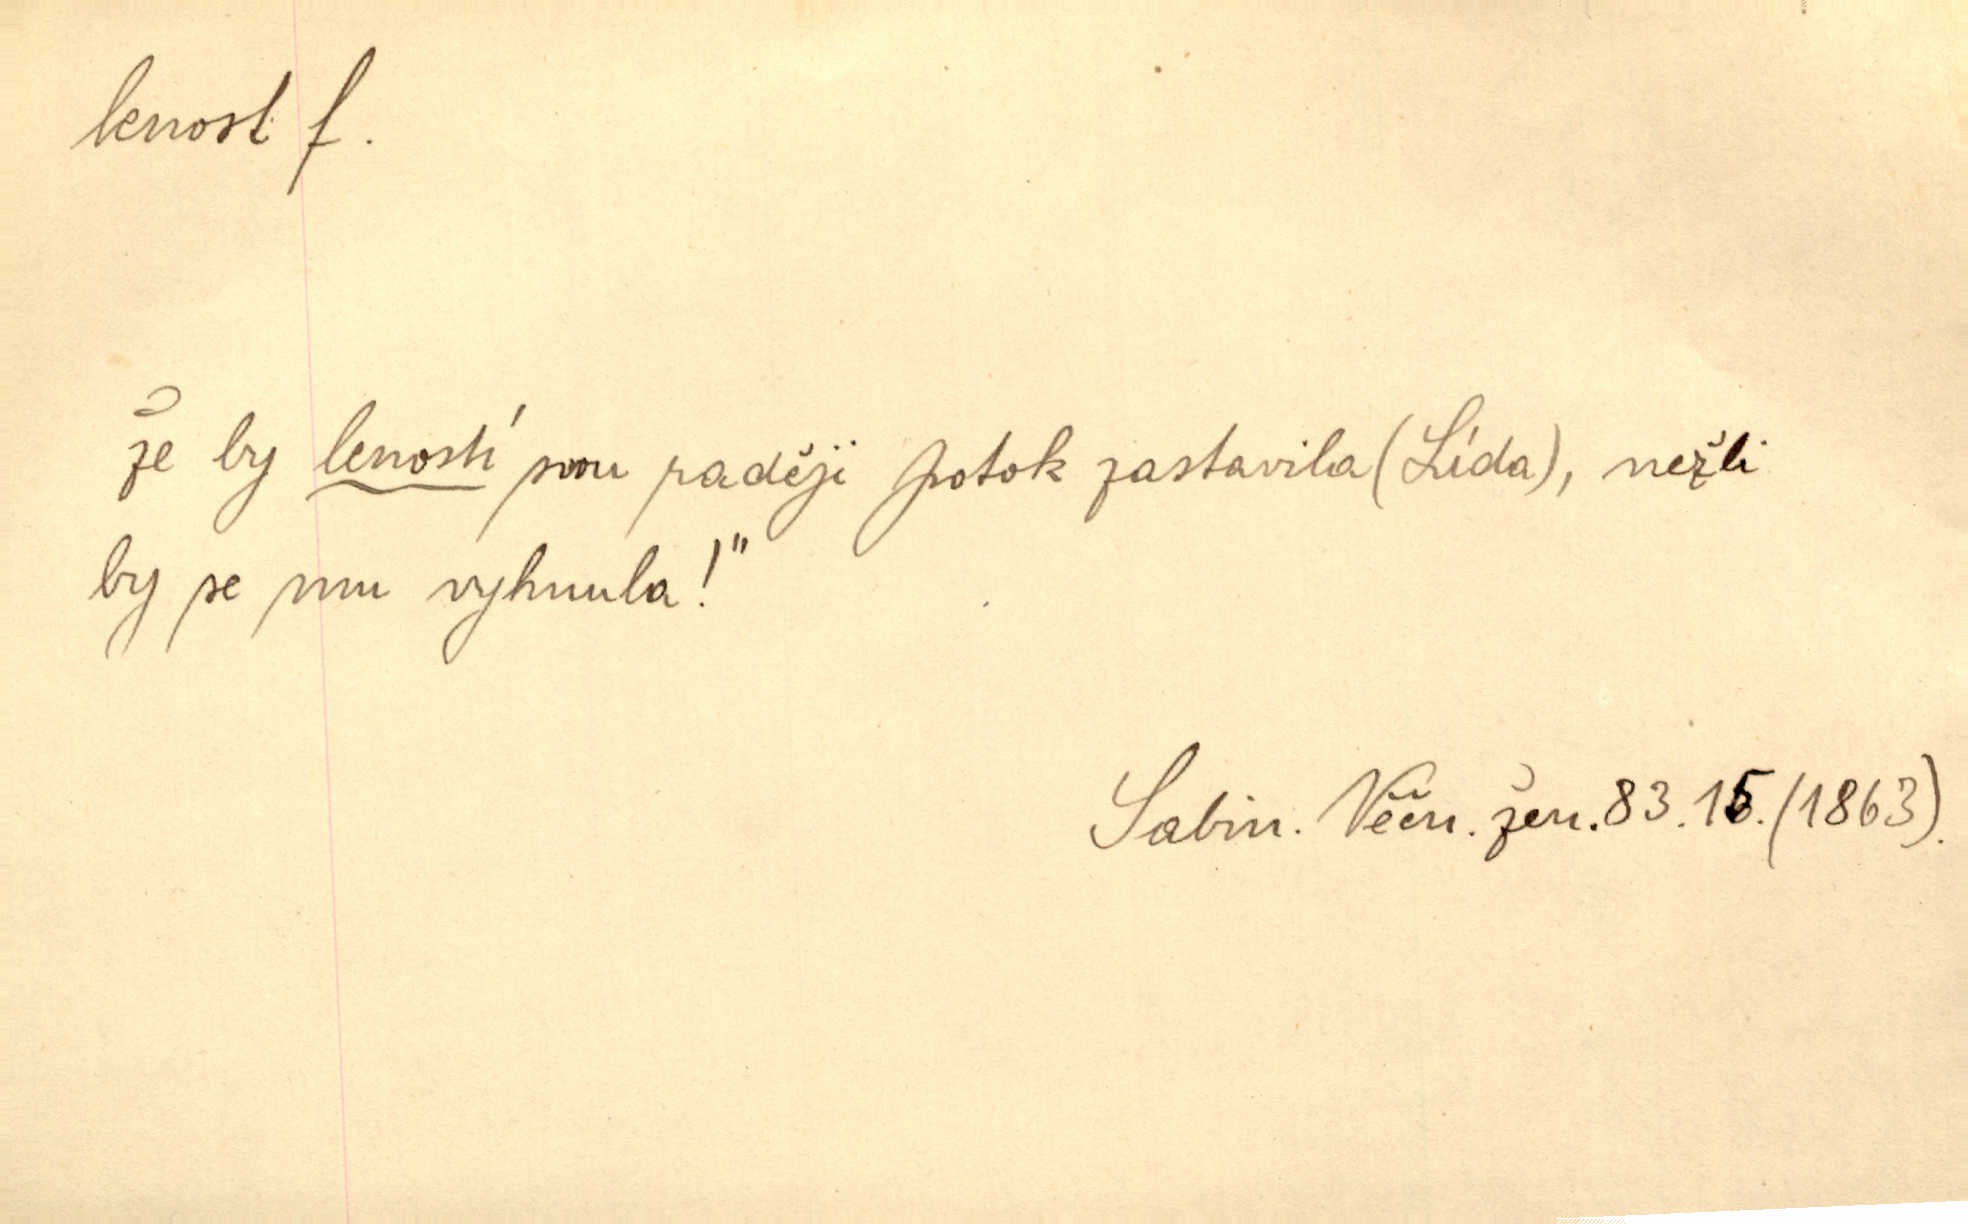 lenost f.
že by leností svou raději potok zastavila (Lída), nežli
by se mu vyhnula!"
Sabin. Věčn. žen. 83. 15. (1863).